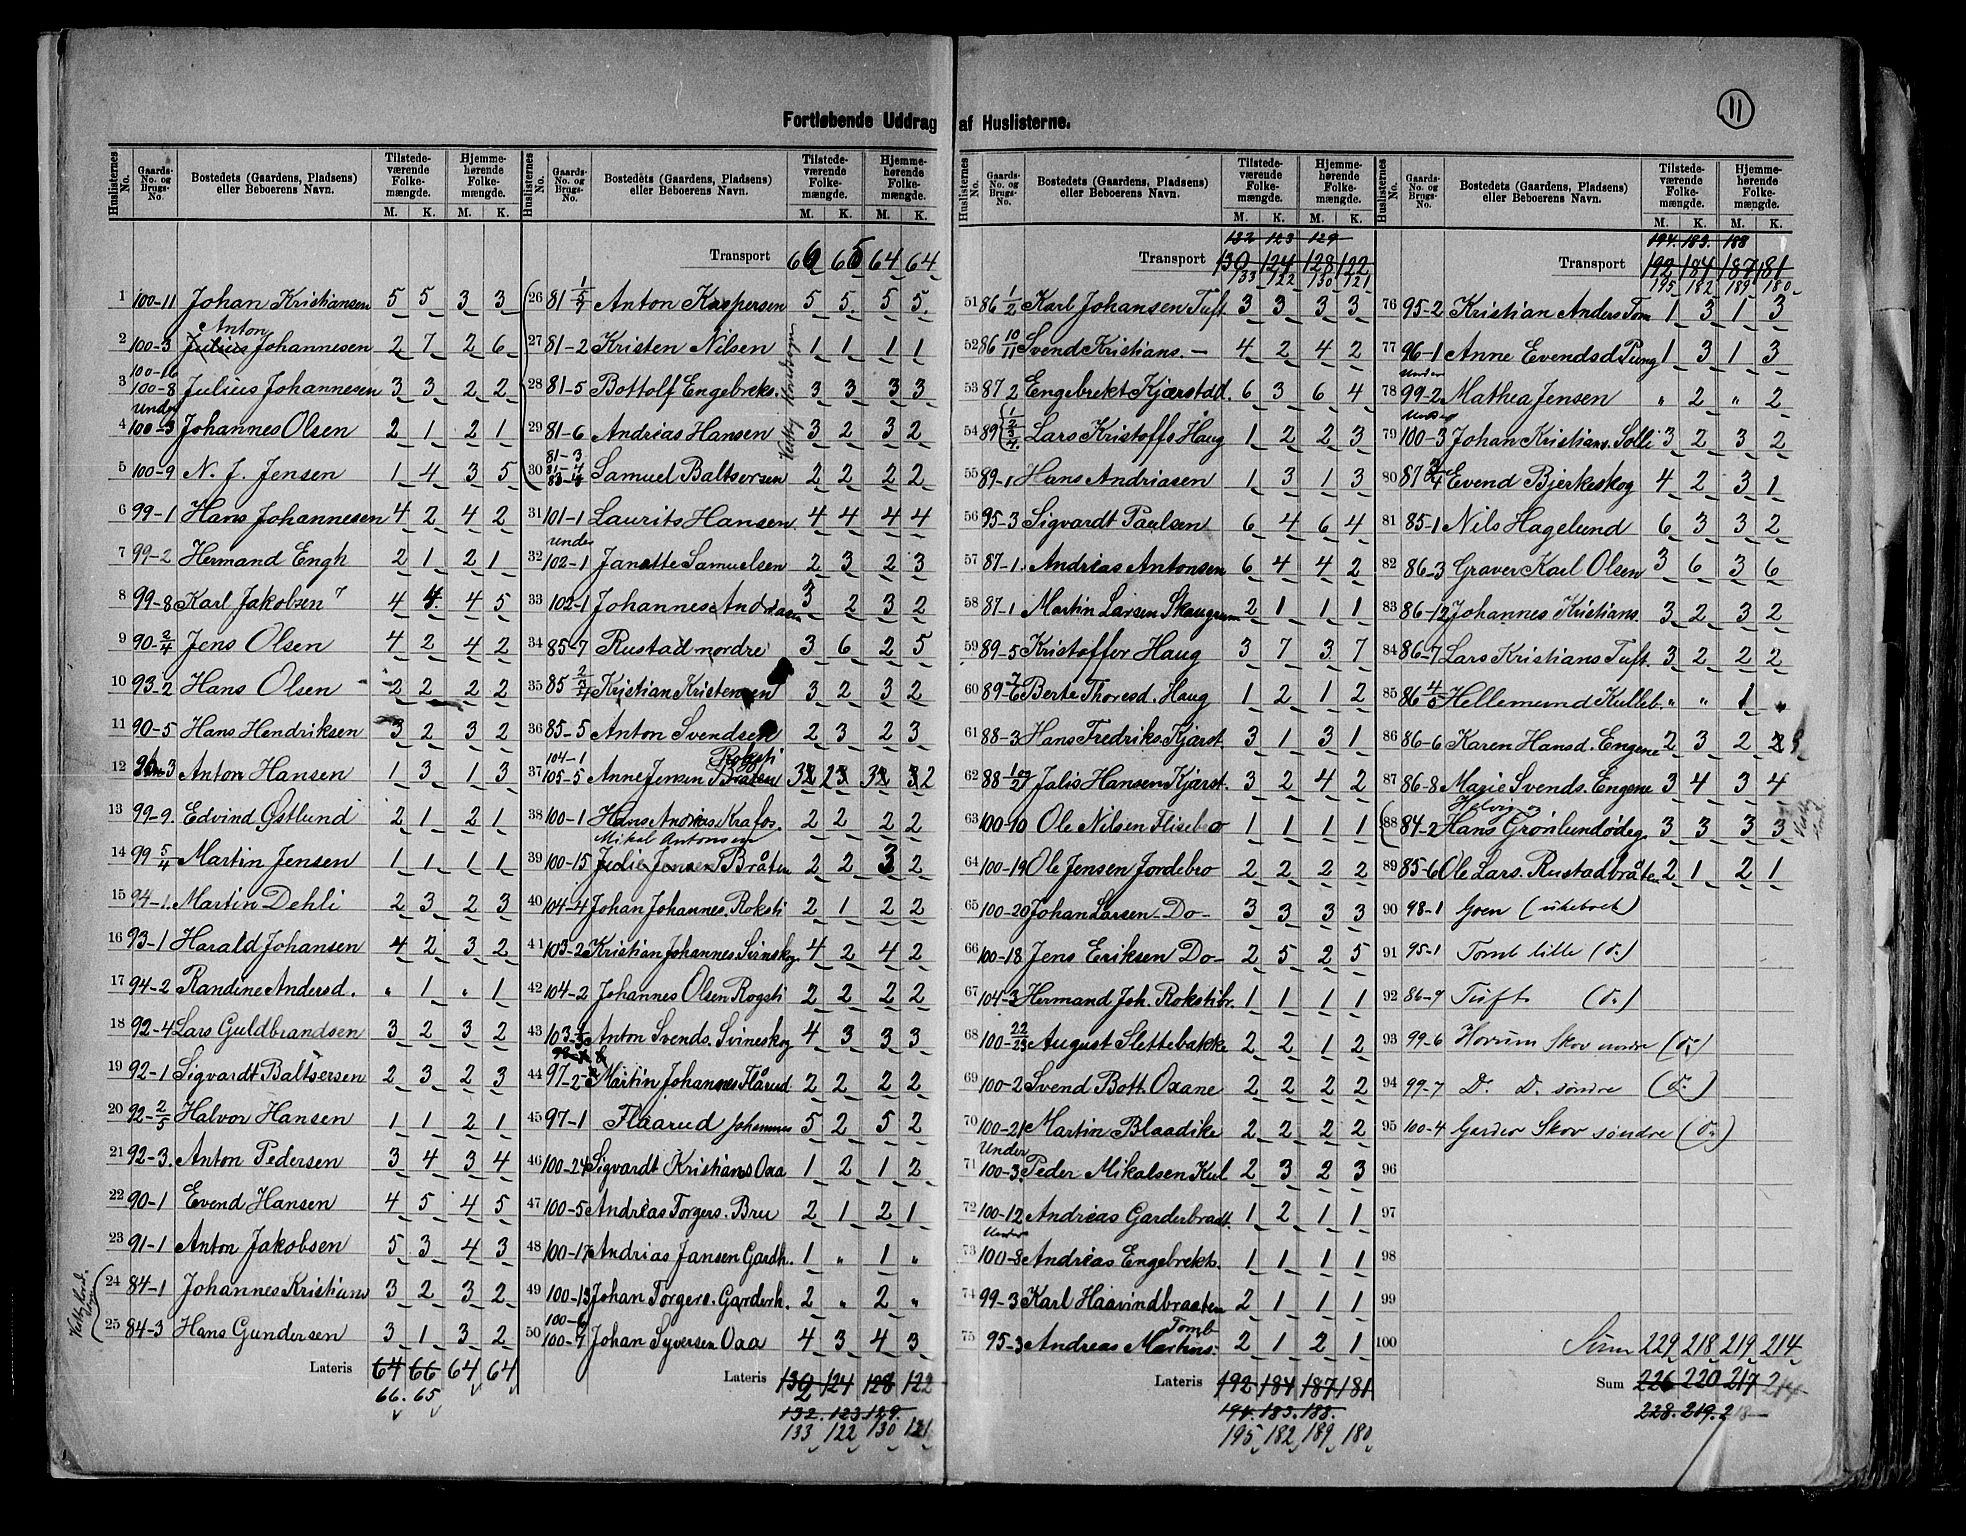 11
Fortløbende Uddrag af Huslisterne.
Huslisternes No. | Gaards-No. og Brugs-No. | Bostedets (Gaardens, Pladsens) eller Beboerens Navn. | Tilstedeværende Folkemængde. M. K. | Hjemmehørende Folkemængde. M. K.
1 100-11 Johan Kristiansen 5 5 3 3
Anton
2 100-3 Julius Johannesen 2 7 2 6
100-16
3 100-8 Julius Johannesen 3 3 2 2
under
4 100-3 Johannes Olsen 2 1 2 1
5 100-9 N. J. Jensen 1 4 3 5
6 99-1 Hans Johannesen 4 2 4 2
7 99-2 Hermand Engh 2 1 2 1
8 99-8 Karl Jakobsen 4 4 4 5
9 90-2/4 Jens Olsen 4 2 4 2
10 93-2 Hans Olsen 2 2 2 2
11 90-5 Hans Hendriksen 3 2 3 2
12 Anton Hansen 1 3 1 3
13 99-9. Edvind Østlund 2 1 2 1
14 99 5/4 Martin Jensen 1 1 1 1
15 94-1. Martin Dehli 2 3 2 3
16 93-1 Harald Johansen 4 2 3 2
17 94-2 Randine Andersd. " 1 " 1
18 92-4 Lars Guldbrandsen 3 2 3 2
19 92-1 Sigvardt Baltsersen 2 3 2 3
20 92-2/5 Halvor Hansen 1 1 2 1
21 92-3. Anton Pedersen 3 4 3 4
22 90-1 Evend Hansen 4 5 4 5
23 91-1 Anton Jakobsen 5 3 4 3
24 84-1 Johannes Kristians 3 2 3 2
25 84-3 Hans Gundersen 3 1 3 2
Lateris 64 66 64 64
66. 65
Huslisternes No. | Gaards-No. og Brugs-No. | Bostedets (Gaardens, Pladsens) eller Beboerens Navn. | Tilstedeværende Folkemængde. M. K. | Hjemmehørende Folkemængde. M. K.
Transport 66 65 64 64
26 81 Anton Kaspersen 5 5 5 5
27 81-2 Kristen Nilsen 1 1 1 1
28 81-5 Bottolf Engebreks. 3 3 3 3
29 81-6 Andreas Hansen 3 2 3 2
81-3
81-4
30 83-4 Samuel Baltsersen 2 2 2 2
31 101-1 Laurits Hansen 4 4 4 4
under
32 102-1 Janette Samuelsen 2 3 2 3
33 102-1 Johannes Andreasen 3 2 3 2
34 85-7 Rustad nordre 3 6 2 5
35 85 Kristian Kristensen 3 2 3 2
36 85-5 Anton Svendsen 2 3 2 3
104-1 Roksti
37 105-5 Anne Jensen Bråten 3 2 3 2
38 100-1 Hans Andreas Krafos. 2 2 2 2
Mikal Antonsen
39 100-15 Julie Jensen Bråten 2 2 3 2
40 104-4 Johan Johannes. Roksti 2 1 2 2
41 103-2 Kristian Johannes Svinskog 4 2 4 2
42 104-2 Johannes Olsen Rogsti 2 2 2 2
43 103 Anton Svends. Svineskog 4 3 3 3
44 97-2 Martin Johannes Flårud 2 2 2 2
45 97-1 Flaarud Johannes 5 2 5 2
46 100-24 Sigvardt Kristians Oaa 1 2 1 2
47 100-5 Andreas Torgers. Bru 2 1 2 1
48 100-17 Andrias Jansen Gardh. 1 " 1 "
49 100-13 Johan Torgers. Garderh. 2 " 2 "
100-6
50 100-7 Johan Syversen Oaa 4 3 4 3
Lateris 130 124 128 122
132. 123. 129.
133 122 130 121
Huslisternes No. | Gaards-No. og Brugs-No. | Bostedets (Gaardens, Pladsens) eller Beboerens Navn. | Tilstedeværende Folkemængde. M. K. | Hjemmehørende Folkemængde. M. K.
132 123 129
Transport 130 124 128 122
133 122 130 121
51 86 1/2 Karl Johansen Tuft 3 3 3 3
52 86 10/11 Svend Kristians. - 4 2 4 2
53 87 2 Engebrekt Kjærstad. 6 3 6 4
54 89 Lars Kristoffs Haug 1 2 2 3
55 89-1 Hans Andriasen 1 3 1 3
56 95-3 Sigvardt Paulsen 6 4 6 4
57 87-1. Andreas Antonsen 6 4 4 2
58 87-1 Martin Larsen Skaugrum 2 1 1 1
59 89-5 Kristoffer Haug 3 7 3 7
60 89- Berte Thoresd. Haug 1 2 1 2
61 88-3 Hans Fredriks. Kjærst. 3 1 3 1
62 88-1 og 2 Julis Hansen Kjærst. 3 2 4 2
63 100-10 Ole Nilsen Flisebo 1 1 1 1
64 100-19 Ole Jensen Jordebro 2 2 2 2
65 100-20 Johan Larsen - Do - 3 3 3 3
66 100-18 Jens Eriksen Do - 2 5 2 5
67 104-3 Hermand Joh. Rokstibr. 1 1 1 1
68 100-22/23 August Slettebakke 2 2 1 2
69 100-2 Svend Bott. Oxane 2 2 2 2
70 100-21 Martin Blaadike 2 2 2 2
Under
71 100-3 Peder Mikalsen Kul 2 3 2 3
72 100-12 Andreas Garderbradt. 1 2 1 1
under
73 100-8 Andreas Engebrekts. 1 1 1 1
74 99-3 Karl Haavindbraaten 2 1 1 1
Tomb
75 95-3 Andreas Martins. 2 1 2 1
Lateris 192 184 187 181
194. 183. 188.
195 182 189 180
Huslisternes No. | Gaards-No. og Brugs-No. | Bostedets (Gaardens, Pladsens) eller Beboerens Navn. | Tilstedeværende Folkemængde. M. K. | Hjemmehørende Folkemængde. M. K.
194. 183. 188
Transport 192 184 187 181
195 182 189 180
76 95-2 Kristian Anders Tom 1 3 1 3
77 96-1 Anne Evendsd Pung 1 3 1 3
under
78 99-2 Mathea Jensen " 2 " 2
under
79 100-3 Johan Kristians. Solli 3 2 3 2
80 87 3/4 Evend Bjerkeskog 4 2 3 1
81 85-1 Nils Hagelund 6 3 3 2
82 86-3 Graver Karl Olsen 3 6 3 6
83 86-12 Johannes Kristians. 3 2 3 2
84 86-7 Lars Kristians Tuft. 3 2 2 2
85 86 4/5 Hellemund Kulleb. " " 1 "
86 86-6 Karen Hansd. Engene 2 3 2 3
87 86-8 Marie Svends. Engene 3 4 3 4
Helvig
88 84-2 Hans Grønlundødeg. 3 3 3 3
89 85-6 Ole Lars. Rustadbråten 2 1 2 1
90 98-1 Goen (ubeboet)
91 95-1 Tomt lille (do)
92 86-9 Tuft (do)
93 99-6 Horum Skov nordre (do)
94 99-7 D. D. søndre (do)
95 100-4 Garder Skov søndre (do)
96
97
98
99
100 Sum 229 218 219 214
Sum 226 220 217 214
228. 219. 218